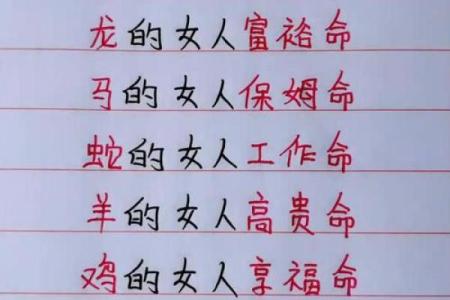 龙的女人富裕命
马的女人保姆命
蛇的女人工作命
羊的女人高贵命
鸡的女人享福命